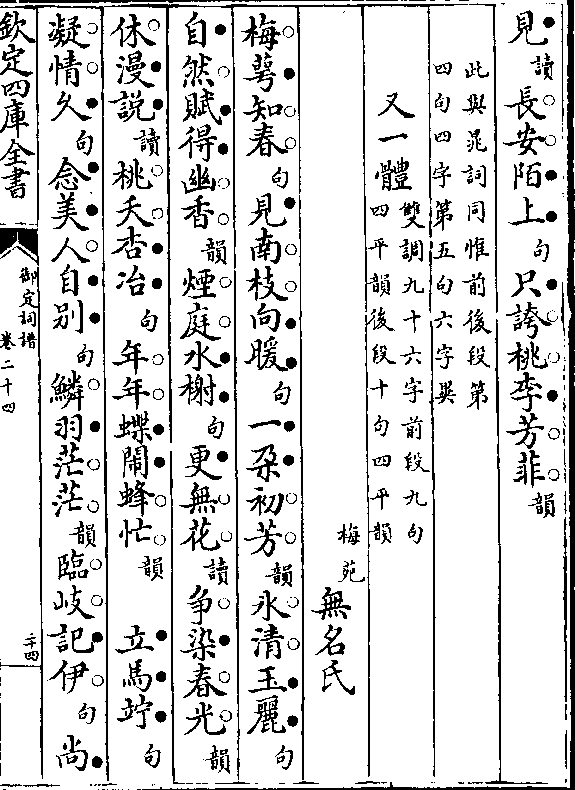 見讀長安陌上句只誇桃李芳菲韻
此與晁詞同惟前後段第
四句四字第五句六字異
又一體雙調九十六字前段九句
四平韻後段十句四平韻
梅苑無名氏
梅萼知春句見南枝向暖句一朶初芳韻氷清玉麗句
自然賦得幽香韻煙庭水榭句更無花讀争染春光韻
休漫說讀桃夭杏冶句年年蝶鬧蜂忙韻 立馬竚句
凝情久句念美人自别句鱗羽茫茫韻臨岐記伊句尚
欽定四庫全書
御定詞譜
卷二十四
二十四